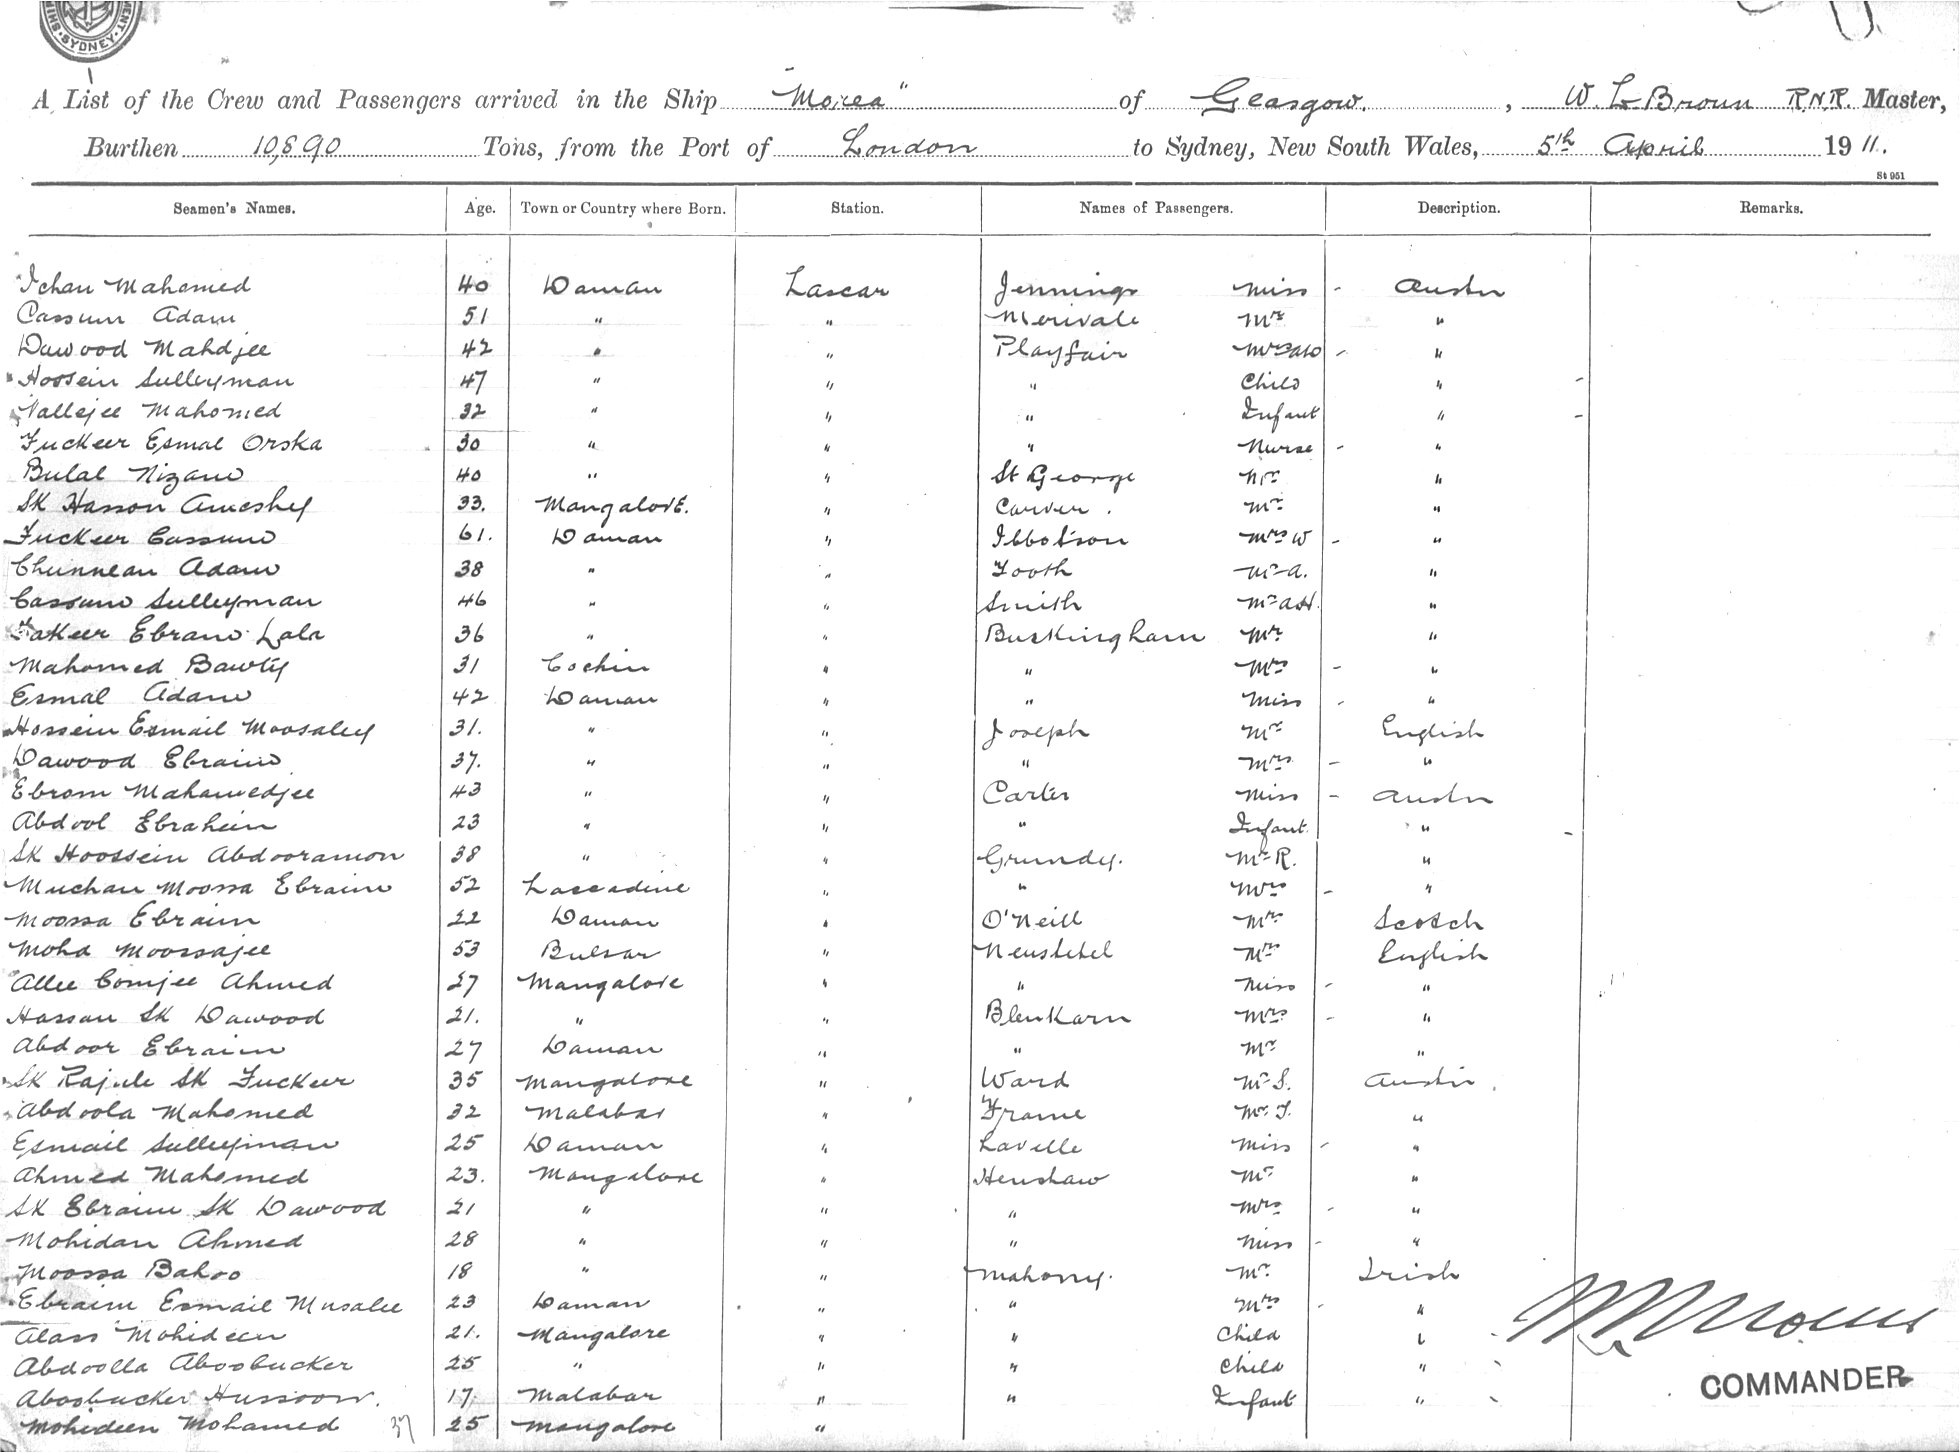 SYDNEY
A List of the Crew and Passengers arrived in the Ship "Morea" of Glasgow, W L Broun R.N.R. Master,
Burthen 10,890 Tons, from the Port of London to Sydney, New South Wales, 5th April 1911.
St 951
Seamen's Names. Age. Town or Country where Born. Station. Names of Passengers. Description. Remarks.
Ichan Mahomed 40 Daman Lascar Jennings Miss - Austn
Cassum Adam 51 " " Merivale Mr "
Dawood Mahdjee 42 " " Playfair Mrs - "
Hossein Sulleyman 47 " " " Child " -
Vallejee Mahomed 32 " " " Infant " -
Fuckeer Esmal Orska 30 " " " Nurse - "
Bulal Nizam 40 " " St George Mr "
SK Hasson 33. Mangalore. " Carver. Mr "
Fuckeer Cassum 61. Daman " Ibbotson Mrs W - "
Chunnean Adam 38 " " Tooth Mr A. "
Cassum Sulleyman 46 " " Smith Mr AH. "
Fakeer Ebram Lala 36 " " Buckingham Mr "
Mahomed Bawty 31 Cochin " " Mrs - "
Esmal Adam 42 Daman " " Miss - "
Hossein Esmail Moosaley 31. " " Joseph Mr English
Dawood Ebraim 37. " " " Mrs - "
Ebrom Mahamedjee 43 " " Carter Miss - Austn
Abdool Ebraheim 23 " " " Infant. " -
SK Hoossein Abdooramon 38 " " Grundy. Mr R. "
Muchan Moossa Ebraim 52 Laccadine " " Mrs - "
Moossa Ebraim 22 Daman " O'Neill Mr Scotch
Moha Moossajee 53 Bulsar " Neustetel Mr English
Allee Comjee Ahmed 27 Mangalore " " Miss - "
Hassan SK Dawood 21. " " Blenkarn Mrs - "
Abdoor Ebraim 27 Daman " " Mr "
SK Rajule SK Fuckeer 35 Mangalore " Ward Mr S. Austn.
Abdoola Mahomed 32 Malabar " Frame Mr T. "
Esmail Sulleyman 25 Daman " Lavelle Miss - "
Ahmed Mahomed 23. Mangalore " Henshaw Mr "
SK Ebraim SK Dawood 21 " " " Mrs - "
Mohidan Ahmed 28 " " " Miss - "
Moossa Bahoo 18 " " Mahony. Mr. Irish
Ebraim Esmail Musalee 23 Daman " " Mrs - "
Alass Mohideen 21. Mangalore " " Child " -
Abdoolla Aboobucker 25 " " " Child "
COMMANDER
Aboobucker Hussoon. 17 Malabar " " Infant "
Mohideen Mohamed 37 25 Mangalore "